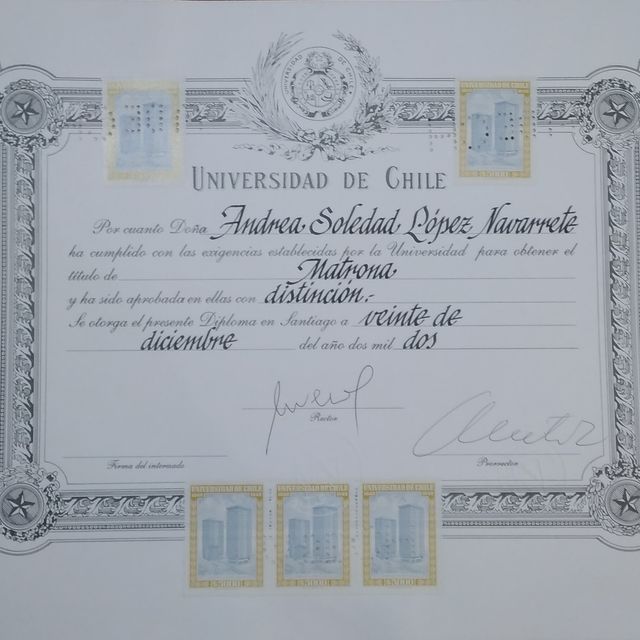 UNIVERSIDAD DE CHILE
UNIVERSIDAD DE CHILE
$5000
UNIVERSIDAD DE CHILE
Por cuanto Doña Andrea Soledad López Navarrete
ha cumplido con las exigencias establecidas por la Universidad para obtener el
título de Matrona
y ha sido aprobada en ellas con distinción.-
Se otorga el presente Diploma en Santiago a veinte de
diciembre del año dos mil dos
Rector
Firma del interesado
Prorrector
UNIVERSIDAD DE CHILE UNIVERSIDAD DE CHILE UNIVERSIDAD DE CHILE
$5000 $5000 $5000